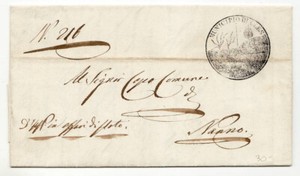 N.° 216
MUNICIPIO DI
Al Signor Capo Comune
di
Nanno.
D'uff.o in affari di Stato.